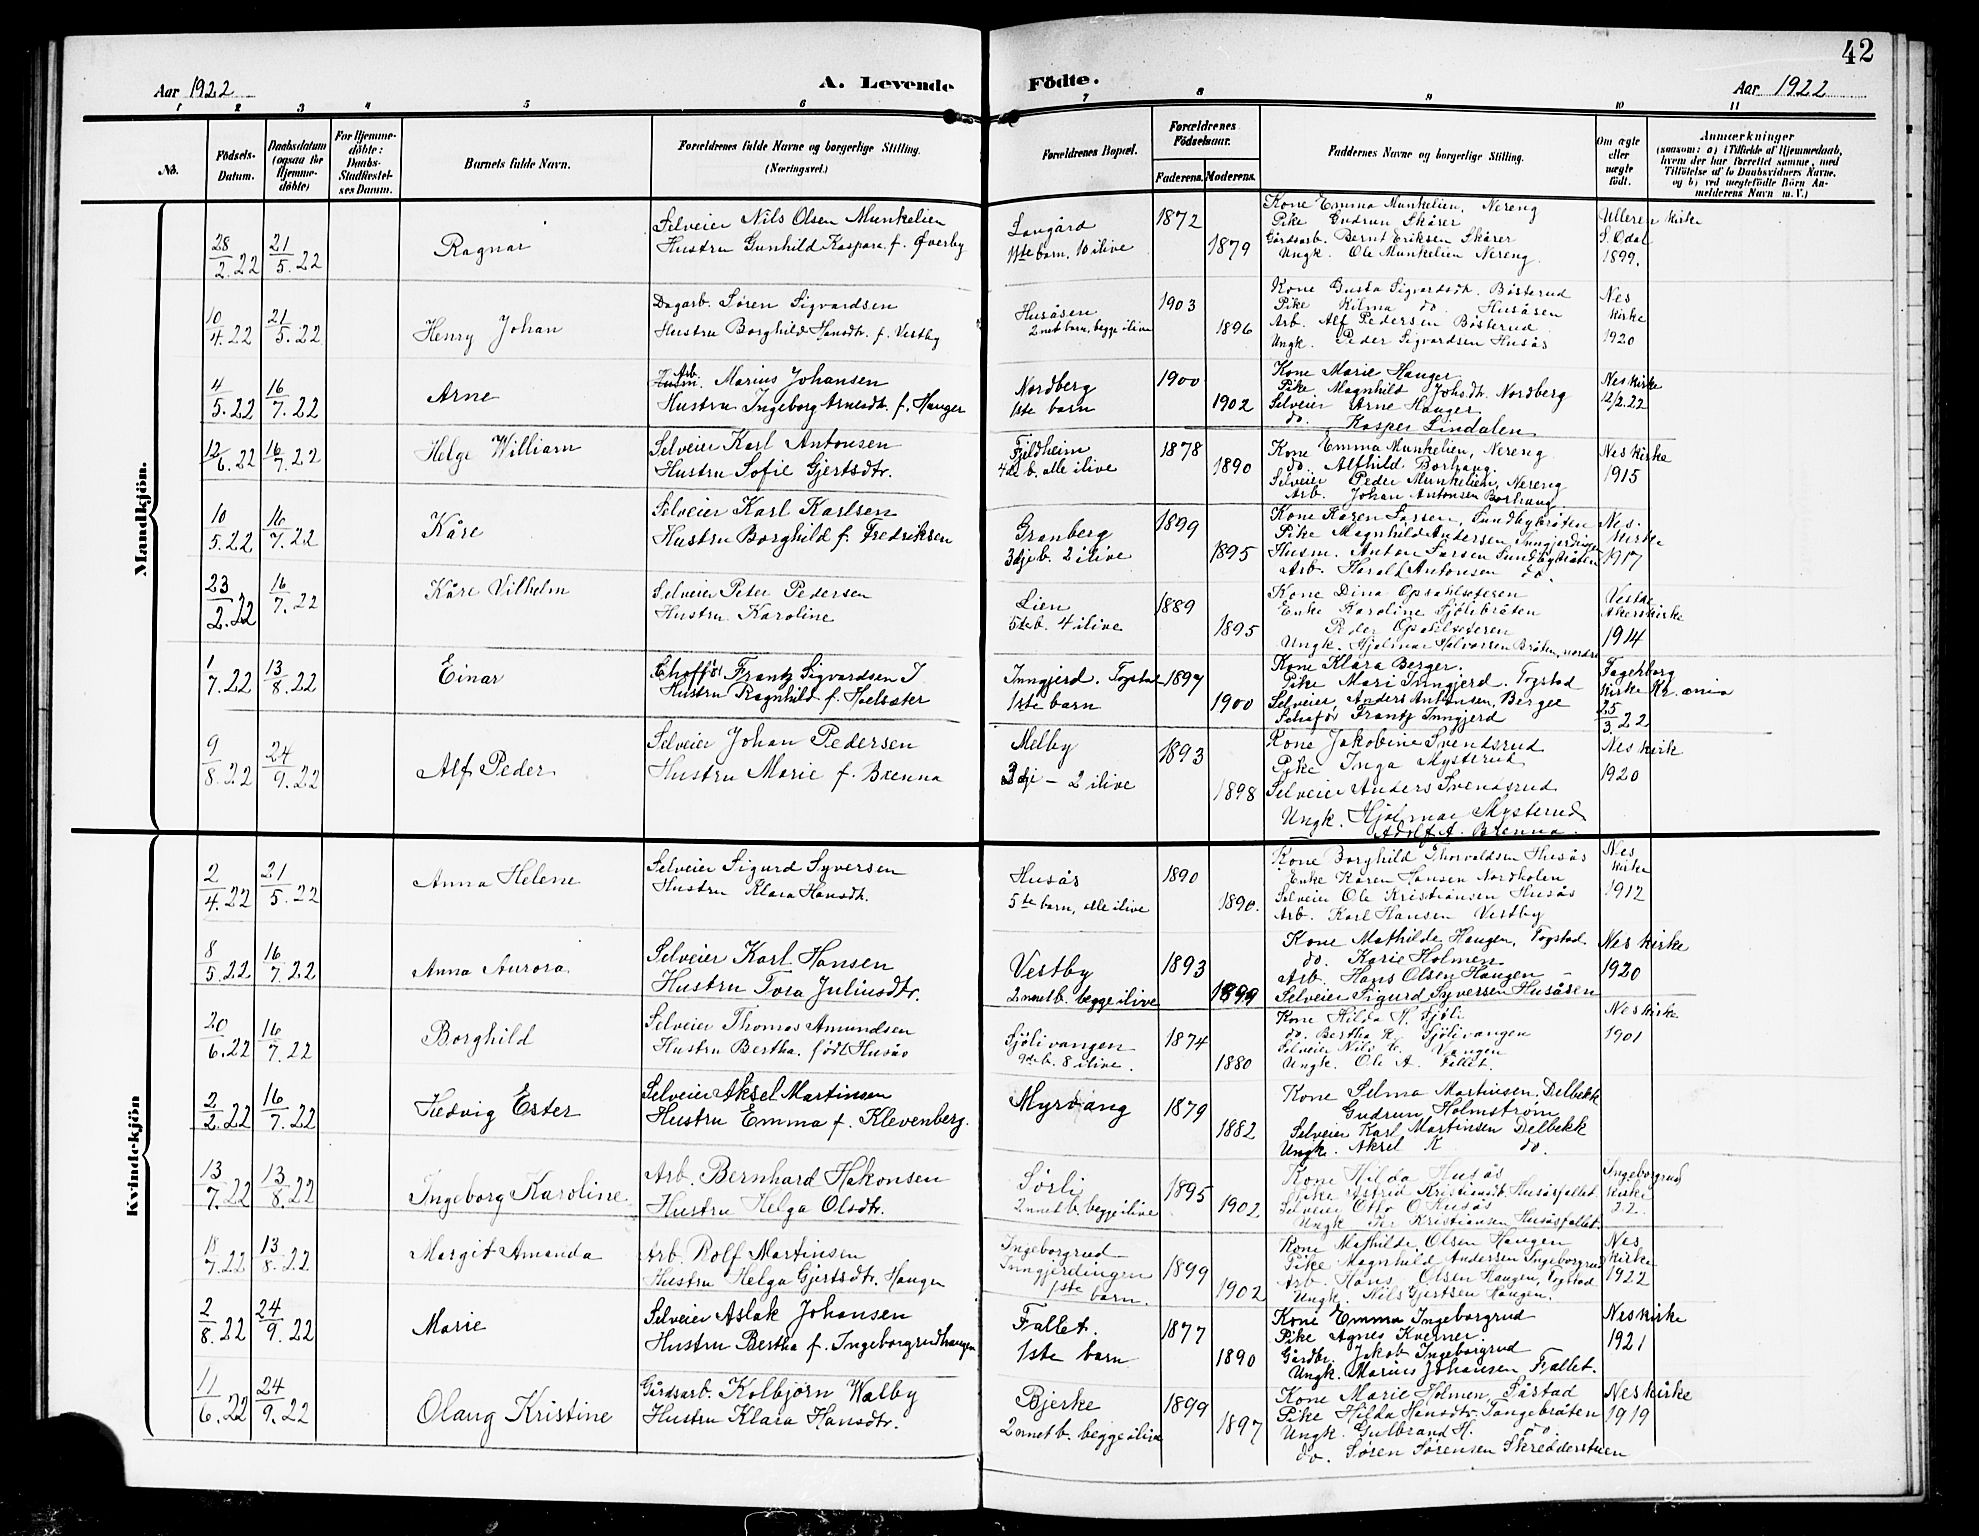 42
Aar 1922
A. Levende Fødte.
Aar 1922
1 2 3 4 5 6 7 8 9 10 11
No.
Fødsels-Datum.
Daabsdatum (ogsaa for Hjemmedøbte)
For Hjemmedøbte: Daabs-Stadfæstelses Datum.
Barnets fulde Navn.
Forældrenes fulde Navne og borgerlige Stilling. (Næringsvei.)
Forældrenes Bopæl.
Forældrenes Fødselsaar.
Faderens. Moderens.
Faddernes Navne og borgerlige Stilling.
Om ægte eller uægte født.
Anmærkninger
(saasom: a) i Tilfælde af Hjemmedaab, hvem der har forrettet samme, med Tilføielse af to Daabsvidners Navne, og b) ved uegtefødte Børn Anmelderens Navn m. V.)
Mandkjøn.
28/2.22 21/5.22 Ragnar
Selveier Nils Olsen Munkelien
Hustru Gunhild Kaspara f. Øverby
Langård
11te barn, 10 ilive
1872 1879
Kone Emma Munkelien, Nereng
Pike Gudrun Skårer
Gårdsarb. Bernt Eriksen Skårer
Ungk. Ole Munkelien Nereng
Ulleren kirke
S. Odal
1899.
10/4.22 21/5.22 Henry Johan
Dagarb. Søren Sigvardsen
Hustru Borghild Hansdt. f. Vestby
Husåsen
2net barn, begge ilive
1903 1896
Kone Gusta Sigvardsdt. Bösterud
Pike Hilma do. Husåsen
Arb. Alf Pedersen Bösterud
Ungk. Peder Sigvardsen Husås
Nes kirke
1920
4/5.22 16/7.22 Arne
Arb. Marius Johansen
Hustru Ingeborg Arnesdt. f. Hauger
Nordberg
1ste barn
1900 1902
Kone Marie Hauger
Pike Magnhild Johsdt. Nordberg
Selveier Arne Hauger
do. Kasper Lindalen
Nes kirke
12/2.22
12/6.22 16/7.22 Helge William
Selveier Karl Antonsen
Hustru Sofie Gjertsdtr.
Fjeldheim
4de b. alle ilive
1878 1890
Kone Emma Munkelien, Nereng
do. Alfhild Borhaug.
Selveier Peder Munkelien, Nereng
Arb. Johan Antonsen Borhaug
Nes kirke
1915
10/5.22 16/7.22 Kåre
Selveier Karl Karlsen
Hustru Borghild f. Fredriksen
Granberg
3dje b. 2 ilive
1899 1895
Kone Karen Larsen, Sundbybråten
Pike Magnhild Andersen Inngjerdingen
Husm. Anton Larsen Sundbybråten
Arb. Harald Antonsen do.
Nes. kirke
1917
23/2.22 16/7.22 Kåre Vilhelm
Selveier Peter Pedersen
Hustru Karoline
Lien
5te b. 4 ilive
1889 1895
Kone Dina Opsahlseteren
Enke Karoline Sjölibråten
Peder Opsahlseteren
Ungk. Hjalmar Halvorsen Bråten, nordre
Vestre Akerskirke
1914
1/7.22 13/8.22 Einar
Choffør Frantz Sigvardsen I
Hustru Ragnhild f. Holsæter
Inngjerd. Togstad
1ste barn
1897 1900
Kone Klara Berger.
Pike Mari Inngjerd. Togstad
Selveier, Anders Antonsen, Berger
Schafør Frantz Inngjerd
Fagerborg kirke Kr.ania
25/3 22
9/8.22 24/9.22 Alf Peder
Selveier Johan Pedersen
Hustru Marie f. Brenna
Melby
3dje – 2 ilive
1893 1898
Kone Jakobine Svendsrud
Pike Inga Mysterud
Selveier Anders Svendsrud
Ungk. Hjalmar Mysterud
Adolf A. Brenna.
Nes kirk
1920
Kvindekjøn
2/4.22 21/5.22 Anna Helene
Selveier Sigurd Syversen
Hustru Klara Hansdt.
Husås
5te barn, alle ilive
1890 1890.
Kone Borghild Thorvaldsen Husås
Enke Karen Hansen Nordholen
Selveier Ole Kristiansen Husås
Arb. Karl Hansen Vestby
Nes kirke
1912
8/5.22 16/7.22 Anna Aurora
Selveier Karl Hansen
Hustru Tora Juliusdtr.
Vestby
2net b. begge ilive
1893 1899
Kone Mathilde Haugen, Togstad
do. Karie Holmen
Arb. Hans Olsen Haugen –
Selveier Sigurd Syversen Husåsen
Nes kirke
1920
20/6.22 16/7.22 Borghild
Selveier Thomas Amundsen
Hustru Bertha. født Husås
Sjölivangen
9de b. 8 ilive.
1874 1880
Kone Hilda H. Sjöli
do. Bertha K. Sjölivangen
Selveier Nils Vangen
Ungk. Ole A. Fallet.
Nes kirke
1901
2/2.22 16/7.22 Hedvig Ester
Selveier Aksel Martinsen
Hustru Emma f. Klevenberg.
Myrvang
1879 1882
Kone Selma Martinsen, Delbekk
Gudrun Holmstrøm
Selveier Karl Martinsen Delbekk
Ungk. Aksel K do.
13/7.22 13/8.22 Ingeborg Karoline
Arb. Bernhard Håkonsen
Hustru Helga Olsdtr.
Sørli
2net b. begge ilive
1895 1902
Kone Hilda Husås
Pike Astrid Kristiansdt. Husåsfallet
Selveier Otto O. Husås
Ungk. Per Kristiansen Husåsfallet.
Ingeborgrud kirke
22.
18/7.22 13/8.22 Margit Amanda
Arb. Rolf Martinsen
Hustru Helga Gjertsdtr. Haugen
Ingeborgrud
Inngjerdingen
1ste barn.
1899 1902
Kone Mathilde Olsen Haugen
Pike Magnhild Andersen Ingeborgrud
Arb. Hans Olsen Haugen, Togstad
Ungk. Nils Gjertsen Haugen.
Nes kirke
1922
2/8.22 24/9.22 Marie
Selveier Aslak Johansen
Hustru Bertha f. Ingeborgrudhaugen
Fallet.
1ste barn
1877 1890
Kone Emma Ingeborgrud
Pike Agnes Kverner.
Gårdbr. Jakob Ingeborgrud
Ungk. Marius Johansen Fallet.
Nes kirke
1921
11/6.22 24/9.22 Olaug Kristine
Gårdsarb. Kolbjørn Walby
Hustru Klara Hansdtr.
Bjerke
2net b. begge ilive
1899 1897
Kone Marie Holmen, Fårstad
Pike Hilda Hansdtr. Tangebråten
Ungk. Gulbrand H. do.
do. Søren Sørensen Skredderstuen
Nes kirke
1919